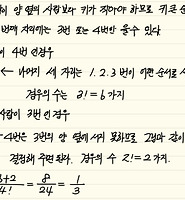 양 옆의 사람보다 키가 작아야 하므로 키 큰 순
번째 자리에는 3번 또는 4번만 올 수 있다
이 4번 인 경우
← 나머지 세 자리는 1. 2. 3 번이 어떤 순서로 서
경우의 수는 3! = 6 가지
사람이 3번 인 경우
4번은 3번의 양 옆에 서지 못하므로
결정해 주면 된다. 경우의 수 2! = 2 가지.
6+2/4! = 8/24 = 1/3